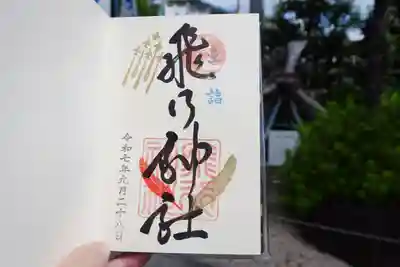 飛行神社
参詣
令和七年九月二十八日